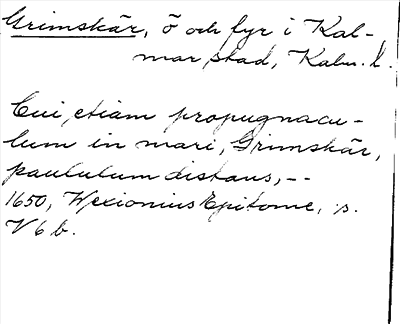 Grimskär, ö och fyr i Kal-
mar stad, Kalm. l.
Cui, etiam propugnacu-
lum in mari, Grimskär,
paululum distans, --
1650, Wexionius Epitome, s.
V 6 b.